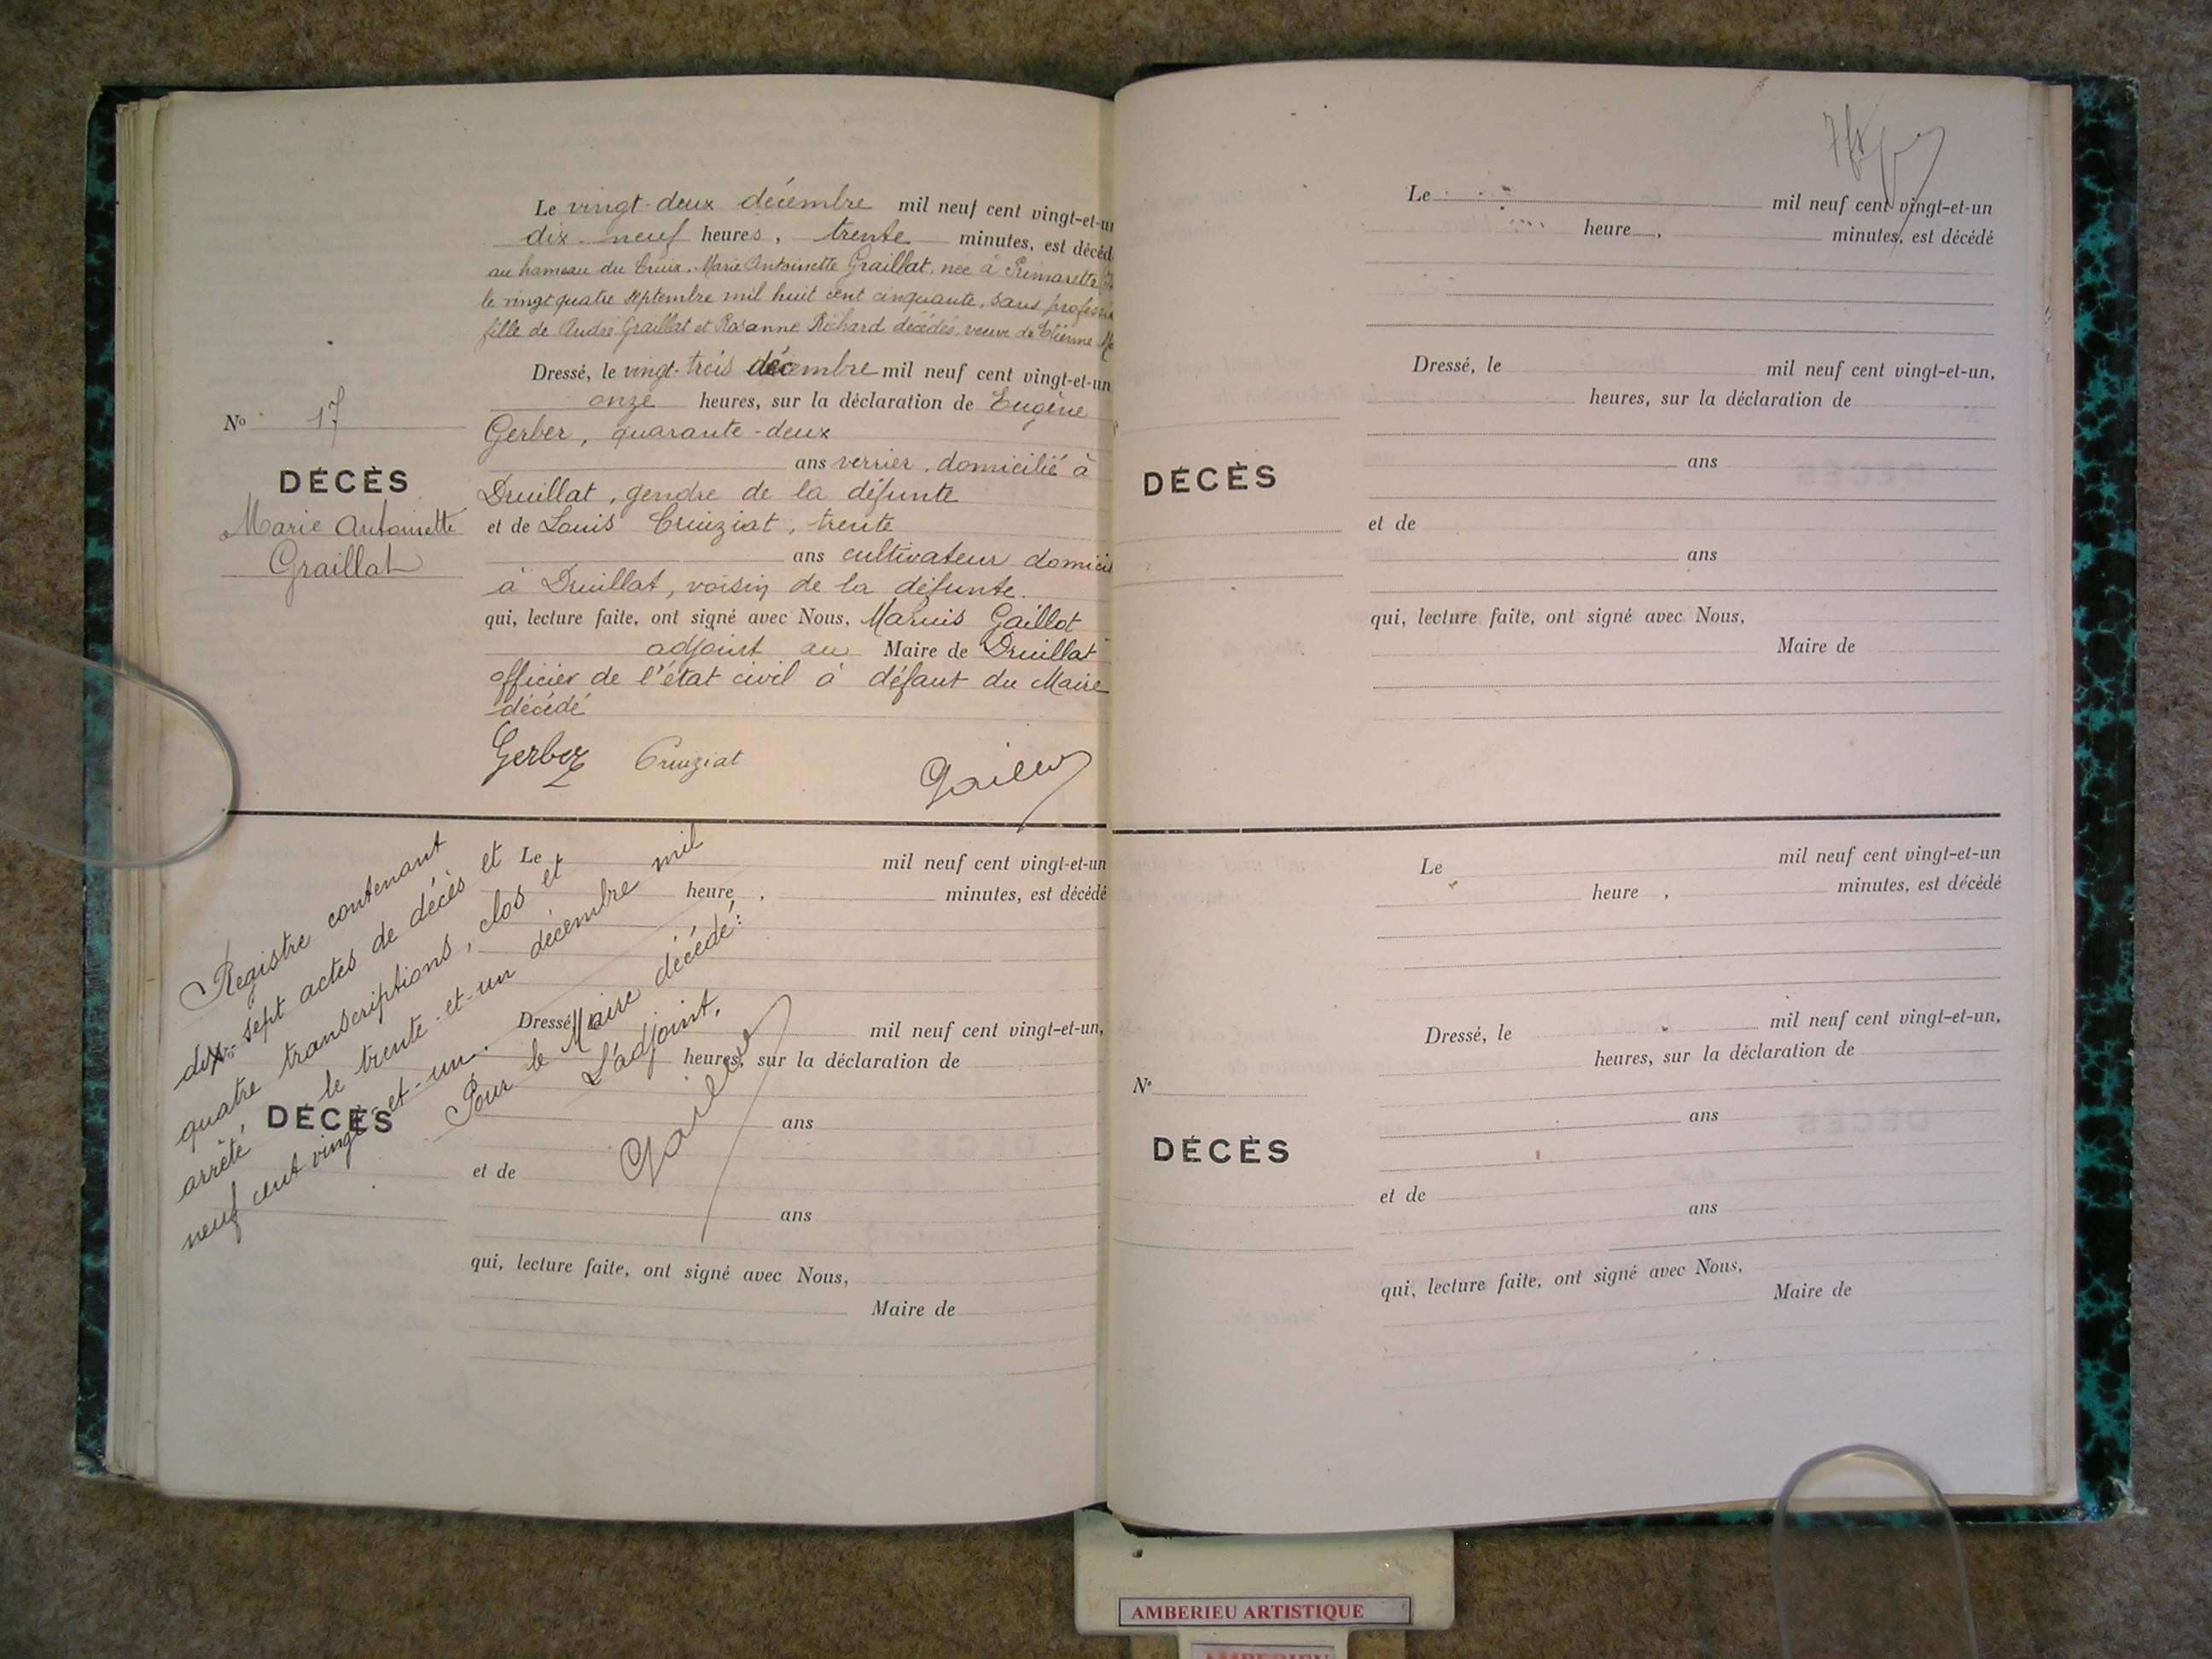 Le vingt-deux décembre mil neuf cent vingt-et-un
dix-neuf heures, trente minutes, est décéd
au hameau du Cruix, Marie Antoinette Graillat, née à Primarette
le vingt quatre septembre mil huit cent cinquante, sans profession
fille de André Graillat et Rosanne Richard décédés, veuve de Etienne
Dressé, le vingt-trois décembre mil neuf cent vingt-et-un
onze heures, sur la déclaration de Eugène
Gerber, quarante-deux
ans verrier, domicilié à
Druillat, gendre de la défunte
et de Louis Cruiziat, trente
ans cultivateur domicil
à Druillat, voisin de la défunte.
qui, lecture faite, ont signé avec Nous, Marius Gaillot
adjoint au Maire de Druillat
officier de l'état civil à défaut du Maire
décédé
Gerber Cruiziat Gaillot
No 17
DÉCÈS
Marie Antoinette
Graillat
Registre contenant
dix-sept actes de décès et
quatre transcriptions, clos et
arrêté le trente-et-un décembre mil
neuf cent vingt-et-un.
Pour le Maire décédé:
L'adjoint,
Gaillot
Le mil neuf cent vingt-et-un
heure , minutes, est décédé
Dressé, mil neuf cent vingt-et-un,
heures, sur la déclaration de
ans
DÉCÈS
et de
ans
qui, lecture faite, ont signé avec Nous,
Maire de
Le mil neuf cent vingt-et-un
heure , minutes, est décédé
Dressé, le mil neuf cent vingt-et-un,
heures, sur la déclaration de
ans
DÉCÈS
et de
ans
qui, lecture faite, ont signé avec Nous,
Maire de
Le mil neuf cent vingt-et-un
heure , minutes, est décédé
Dressé, le mil neuf cent vingt-et-un,
heures, sur la déclaration de
No
ans
DÉCÈS
et de
ans
qui, lecture faite, ont signé avec Nous,
Maire de
AMBERIEU ARTISTIQUE
AMBERIEU